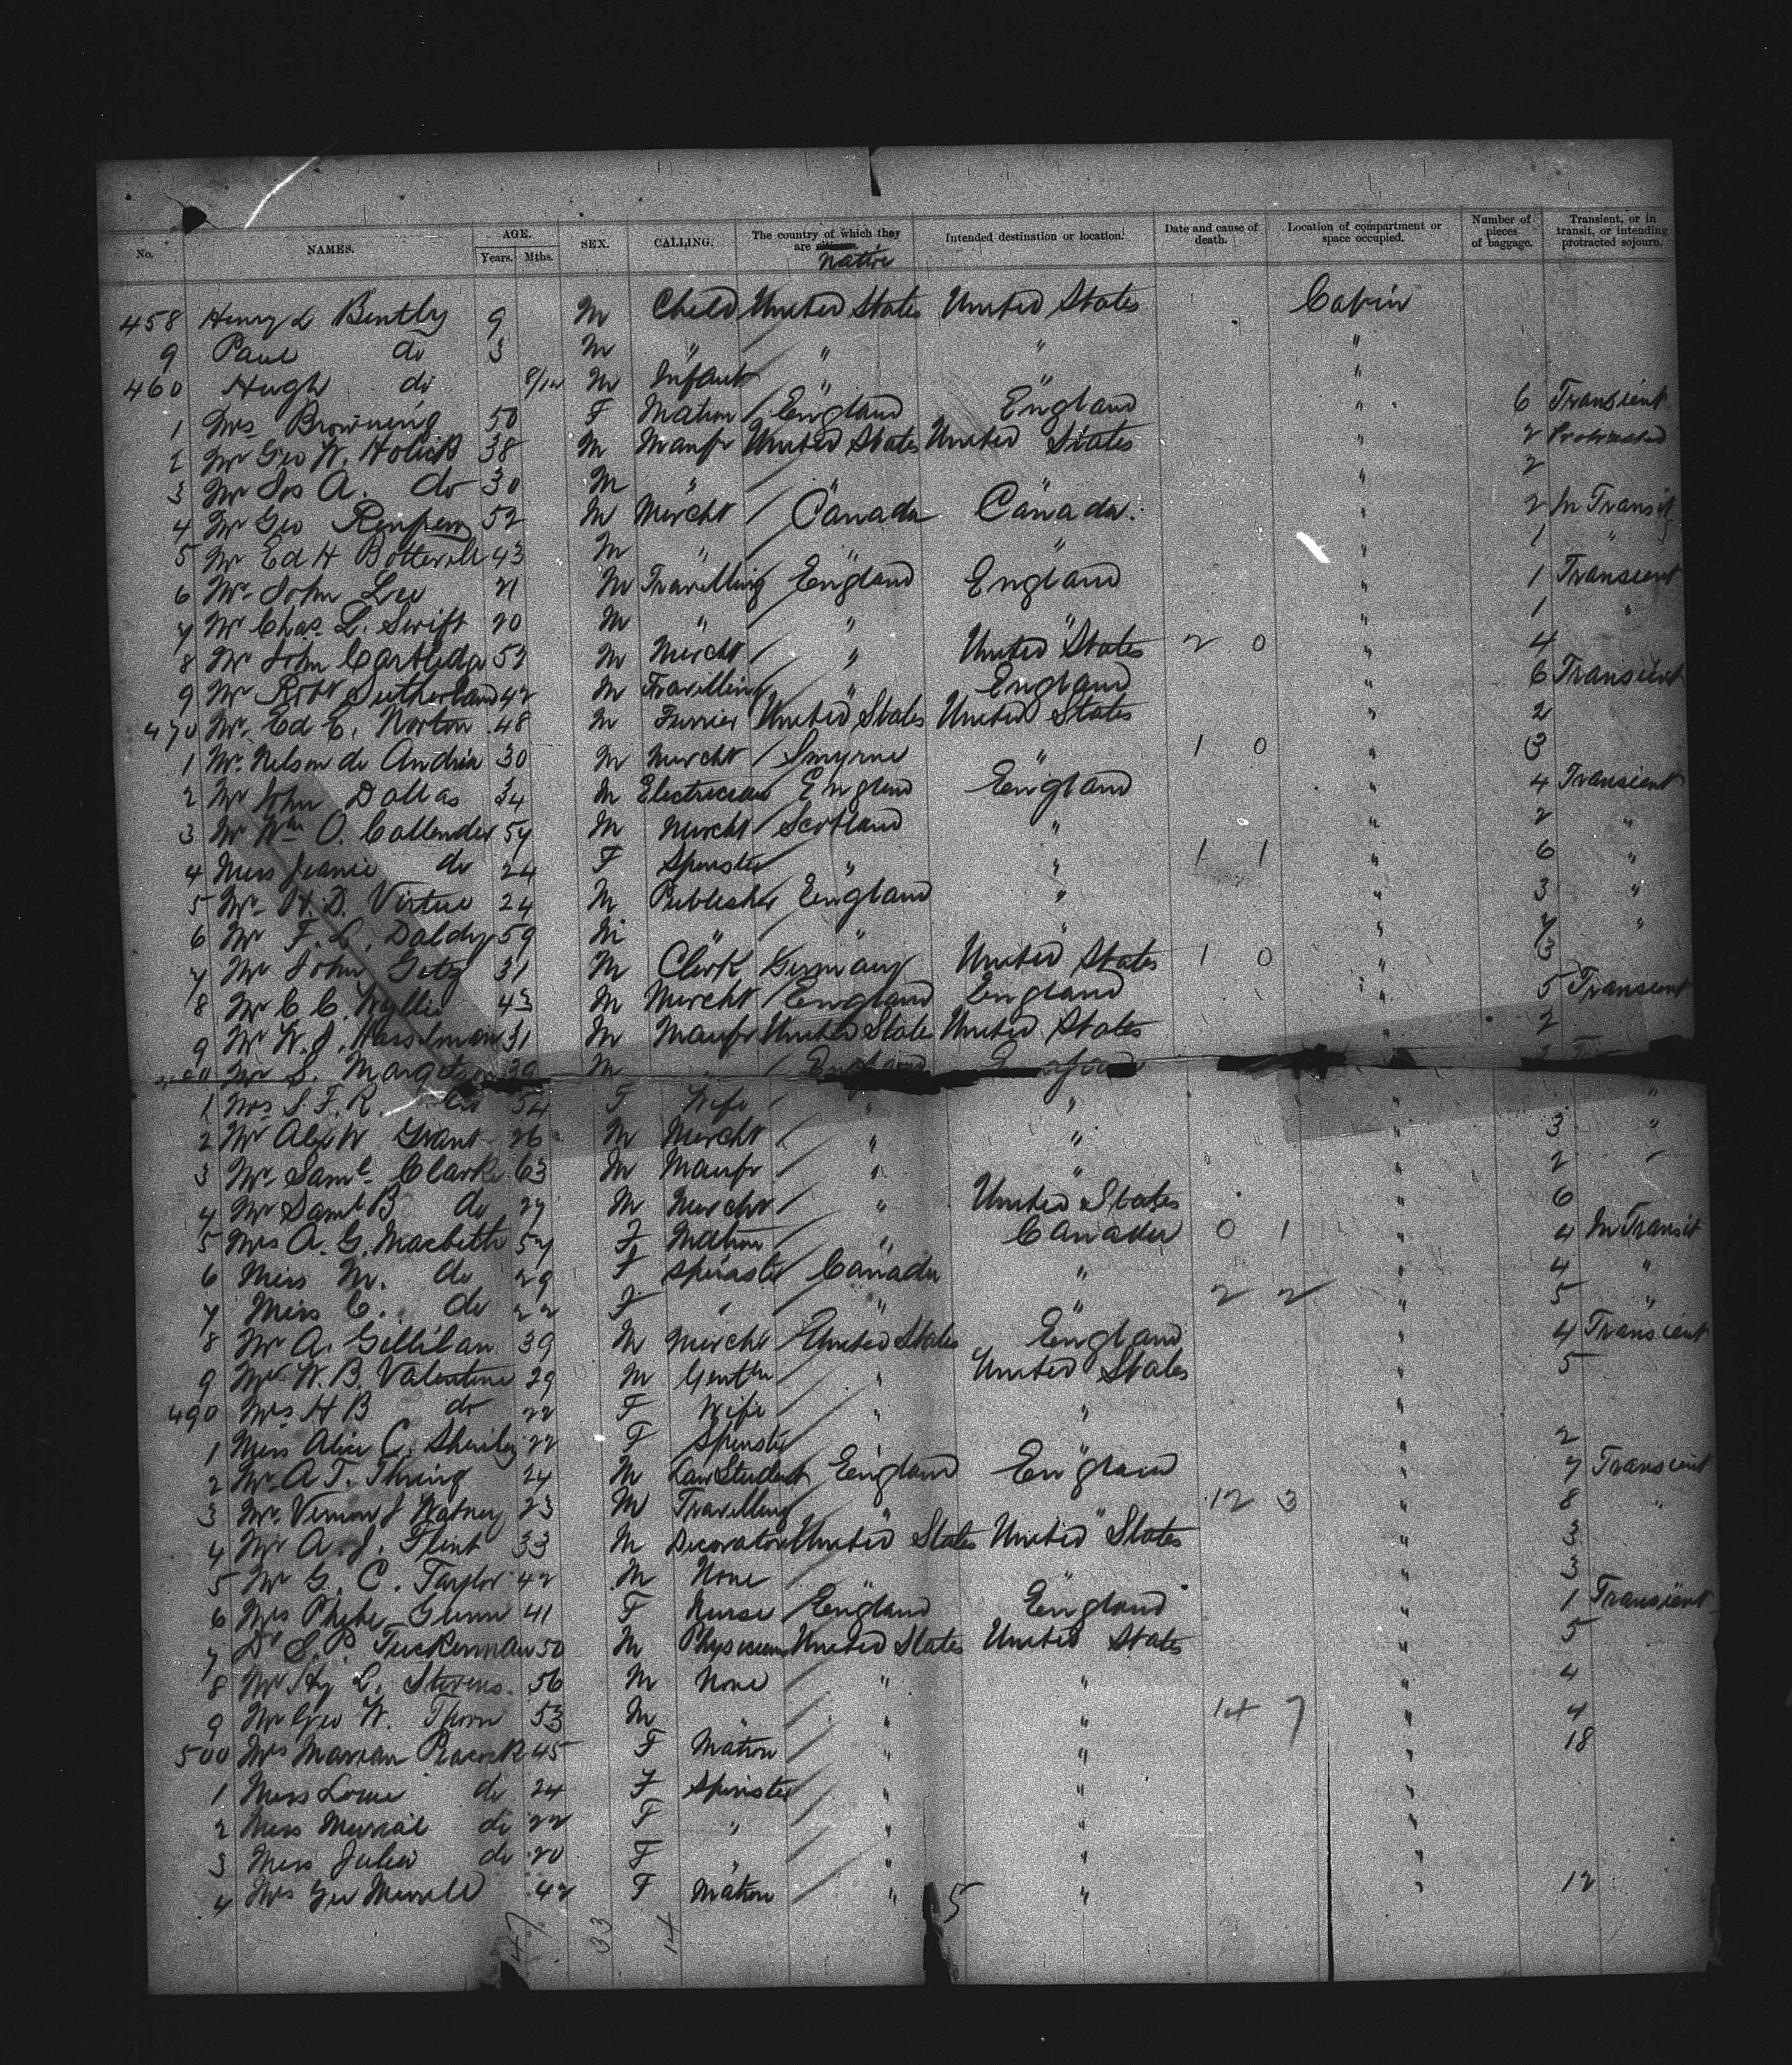 No. NAMES. AGE. Years. Mths. SEX. CALLING. The country of which they are citizens. native Intended destination or location. Date and cause of death. Location of compartment or space occupied. Number of pieces of baggage. Transient, or in transit, or intending protracted sojourn.
458 Henry L Bently 9 M Child United States United States Cabin
9 Paul do 3 M " " " "
460 Hugh do 8/12 M Infant " " "
1 Mrs Browning 50 F Matron England England " 6 Transient
2 Mr Geo W. Holick 38 M Manfr United States United States " 2 Protracted
3 Mr Jos A. do 30 M " " " " 2
4 Mr Geo 52 M Mercht Canada Canada. " 2 In Transit
5 Mr Ed H Botterell 43 M " " " " 1 "
6 Mr John Lee 21 M Travelling England England " 1 Transient
7 Mr Chas L. Swift 20 M " " " " 1 "
8 Mr John Cartledge M Mercht " United States 2 0 " 4
9 Mr Robt Sutherland 42 M Travelling " England " 6 Transient
470 Mr Ed E. Norton 48 M Furrier United States United States " 2
1 Mr Nelson de Andria 30 M Mercht Smyrne " 1 0 " 3
2 Mr John Dallas 34 M Electrician England England " 4 Transient
3 Mr Wm O. Callender 57 M Mercht Scotland " " 2 "
4 Miss Jeanie do 24 F Spinster " " 1 1 " 6 "
5 Mr H. D. Virtue 24 M Publisher England " " 3 "
6 Mr F. L. Daldy 59 M " " " " 7 "
7 Mr John Getz 31 M Clerk Germany United States 1 0 " 3
8 Mr C. C. Wyllie 43 M Mercht England England " 5 Transient
9 Mr W. J. Hasselman 31 M Manfr United States United States " 2
Mr S. Margetson 39 M " England
1 Mrs S. F. R. do 34 F Wife " " " "
2 Mr Alex W Grant 26 M Mercht " " " 3 "
3 Mr Saml Clarke 63 M Manfr " " " 2 "
4 Mr Saml B do 27 M Mercht " United States " 6
5 Mrs A. G. Macbeth 57 F Matron " Canada 0 1 " 4 In Transit
6 Miss M. do 29 F Spinster Canada " " 4 "
7 Miss C. do 22 F " " " 2 2 " 5 "
8 Mr A. Gillilan 39 M Mercht United States England " 4 Transient
9 Mr W. B. Valentine 29 M Gentln " United States " 5
490 Mrs H B do 22 F Wife " " "
1 Miss Alice C. 22 F Spinster " " " 2
2 Mr A T. Thring 24 M Law Student England England " 7 Transient
3 Mr Vernon J Watney 23 M Travelling " " 12 3 " 8 "
4 Mr A. J. Flint 33 M Decorator United States United States " 3
5 Mr G. C. Taylor 42 M None " " " 3
6 Mrs Phebe Gunn 41 F Nurse England England " 1 Transient
7 Dr S. P. Tuckerman 50 M Physician United States United States " 5
8 Mr Hy L. Stevens 56 M None " " " 4
9 Mr Geo W. Thorn 53 M " " " 14 7 " 4
500 Mrs Marian Peacock 45 F Matron " " " 18
1 Miss Louie do 24 F Spinster " " "
2 Miss do 22 F " " " "
3 Miss Julia do 20 F " " " "
4 Mrs Geo Merrill 42 F Matron " " " 12
47 33 14 5